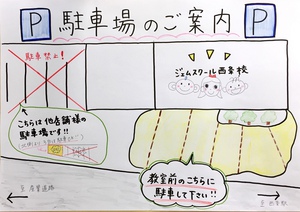 P 駐車場のご案内 P
駐車禁止!
ジェムスクール西幸校
こちらは他店舗様の
駐車場です!!
教室前のこちらに
駐車して下さい!!
至 産業道路